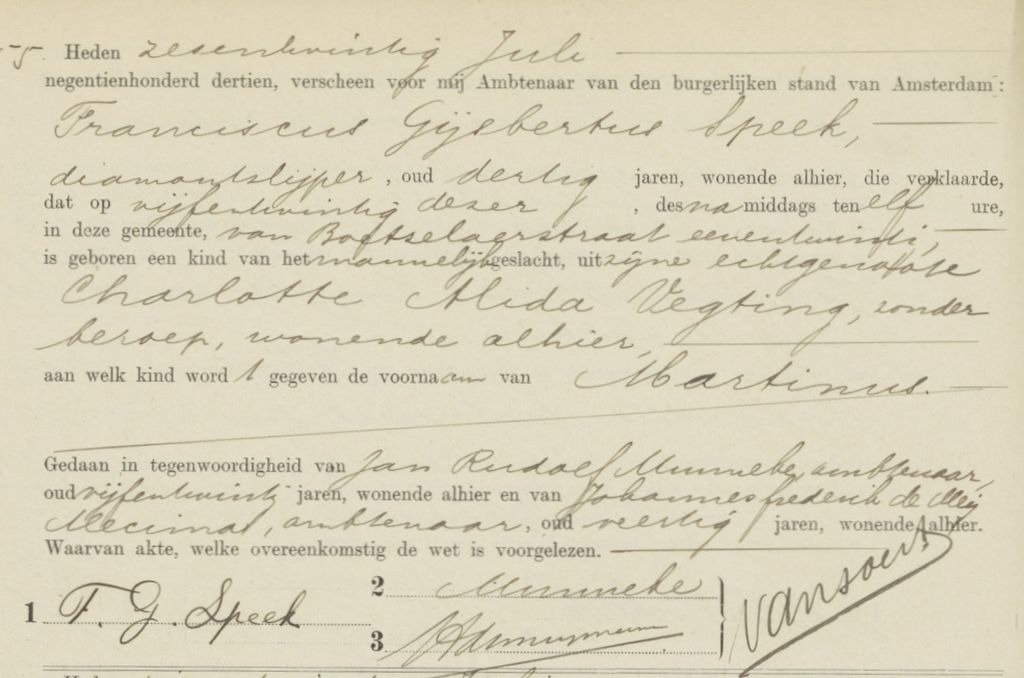 Heden zesentwintig Juli
negentienhonderd dertien, verscheen voor mij Ambtenaar van den burgerlijken stand van Amsterdam:
Franciscus Gijsbertus Speek,
diamantslijper, oud dertig jaren, wonende alhier, die verklaarde,
dat op vijfentwintig dezer, des namiddags ten elf ure,
in deze gemeente, van Boetselaerstraat eenentwintig,
is geboren een kind van het mannelijk geslacht, uit zijne echtgenoote
Charlotte Alida Vegting, zonder
beroep, wonende alhier,
aan welk kind wordt gegeven de voornaam van Martinus.
Gedaan in tegenwoordigheid van Jan Rudolf Munneke, ambtenaar,
oud vijfentwintig jaren, wonende alhier en van Johannes frederik de Meij
Mecima, ambtenaar, oud veertig jaren, wonende alhier.
Waarvan akte, welke overeenkomstig de wet is voorgelezen.
1 F. G. Speek
2 Munneke
3